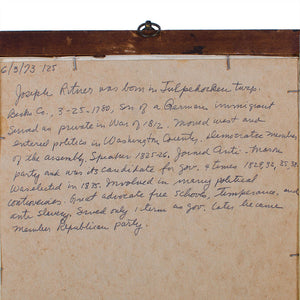 6/3/73 125
Joseph Ritner was born in Tulpehocken twsp.
Berks Co., 3-25-1780, son of a German immigrant
Served as private in War of 1812. Moved west and
entered politics in Washington County, Democratic member
of the assembly, Speaker 1825-26. Joined Anti-Mason
party and was its candidate for gov. 4 times 1829, 32, 35, 38.
Was elected in 1835. Involved in many political
controversies. Great advocate free schools, temperance, and
anti slavery. Served only 1 term as gov. Later became
member Republican party.